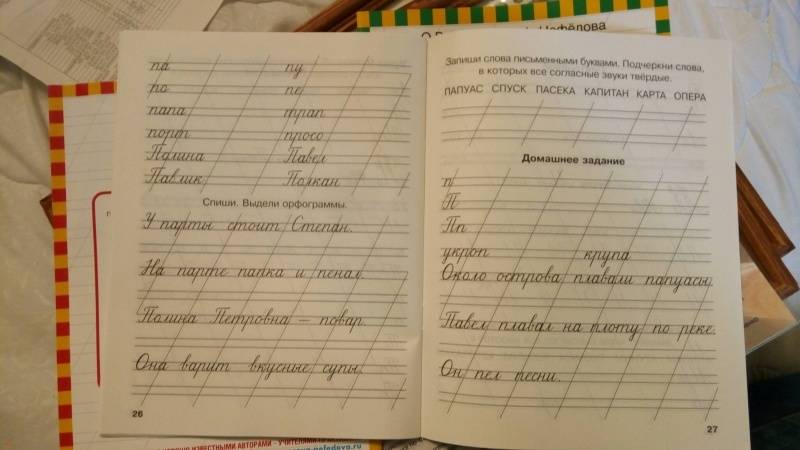 па пу
ро пе
папа трап
порт просо
Полина Павел
Павлик Полкан
Спиши. Выдели орфограммы.
У парты стоит Степан.
На парте папка и пенал.
Полина Петровна – повар.
Она варит вкусные супы.
26
Запиши слова письменными буквами. Подчеркни слова,
в которых все согласные звуки твёрдые.
ПАПУАС СПУСК ПАСЕКА КАПИТАН КАРТА ОПЕРА
Домашнее задание
п
П
Пп
укроп крупа
Около острова плавали папуасы.
Павел плавал на плоту по реке.
Он пел песни.
27
Нефёдова
ИЗВЕСТНЫМИ АВТОРАМИ - УЧИТЕЛЯМИ